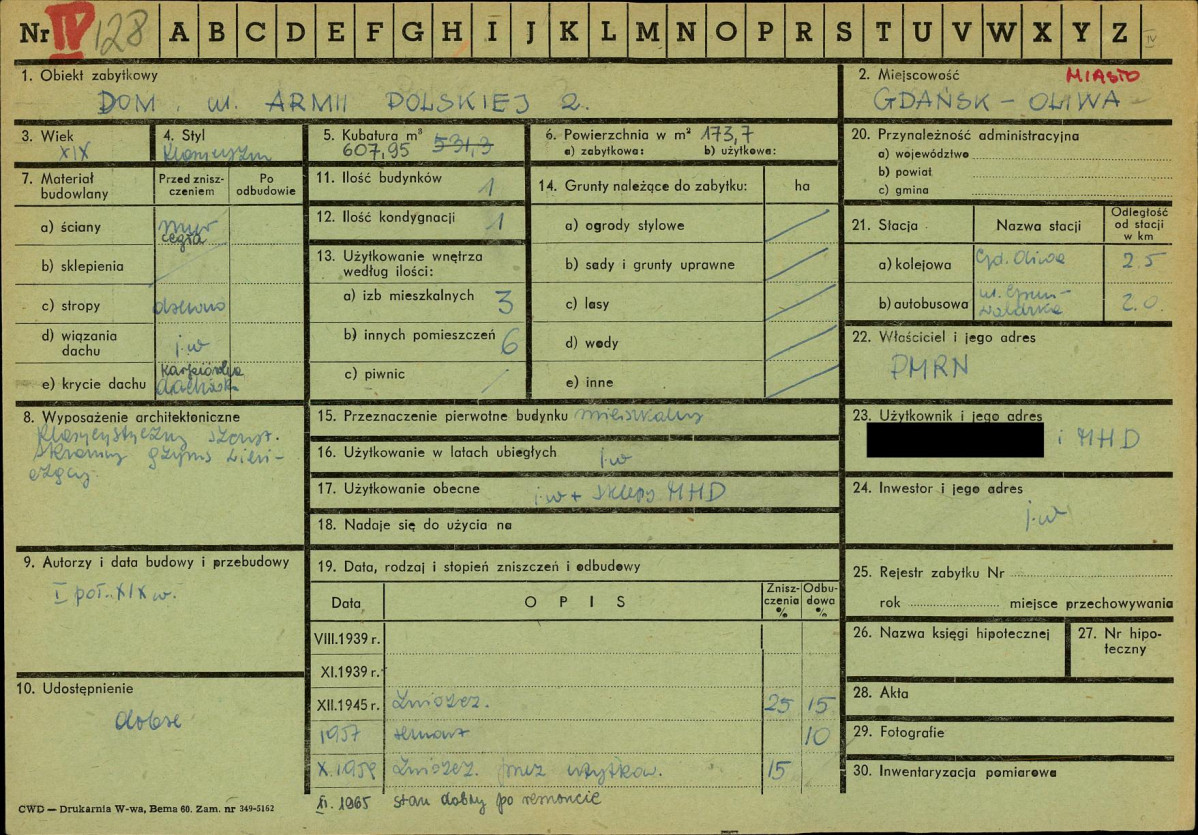 Nr IV 128 A B C D E F G H I J K L M N O P R S T U V W X Y Z IV
1. Obiekt zabytkowy
DOM, ul. ARMII POLSKIEJ 2.
2. Miejscowość MIASTO
GDAŃSK - OLIWA
3. Wiek
XIX
4. Styl
klasycyzm
5. Kubatura m³
607,95 531,3
6. Powierzchnia w m² 173,7
a) zabytkowa: b) użytkowe:
7. Materiał budowlany
Przed zniszczeniem
Po odbudowie
a) ściany mur
cegła
b) sklepienia
c) stropy drewno
d) wiązania dachu j.w
e) krycie dachu
dachówk
8. Wyposażenie architektoniczne
klasycystyczny szczyt.
skromny gzyms wień-
czący.
9. Autorzy i data budowy i przebudowy
I poł. XIX w.
10. Udostępnienie
dobre
11. Ilość budynków 1
12. Ilość kondygnacji 1
13. Użytkowanie wnętrza
według ilości:
a) izb mieszkalnych 3
b) innych pomieszczeń 6
c) piwnic
14. Grunty należące do zabytku: ha
a) ogrody stylowe
b) sady i grunty uprawne
c) lasy
d) wody
e) inne
15. Przeznaczenie pierwotne budynku mieszkalny
16. Użytkowanie w latach ubiegłych j.w
17. Użytkowanie obecne j.w + sklepy MHD
18. Nadaje się do użycia na
19. Data, rodzaj i stopień zniszczeń i odbudowy
Data OPIS Zniszczenia % Odbudowa %
VIII.1939 r.
XI.1939 r.
XII.1945 r. zniszcz. 25 15
1957 remont 10
X.1959 zniszcz. przez użytkow. 15
XI. 1965 stan dobry po remoncie
20. Przynależność administracyjna
a) województwo
b) powiat
c) gmina
21. Stacja Nazwa stacji Odległość od stacji w km
a) kolejowa Gd. Oliwa 2.5
b) autobusowa ul. Grun-
waldzka 2.0.
22. Właściciel i jego adres
PMRN
23. Użytkownik i jego adres
i MHD
24. Inwestor i jego adres
j.w
25. Rejestr zabytku Nr
rok miejsce przechowywania
26. Nazwa księgi hipotecznej
27. Nr hipoteczny
28. Akta
29. Fotografie
30. Inwentaryzacja pomiarowa
CWD — Drukarnia W-wa, Bema 60. Zam. nr 349-5162